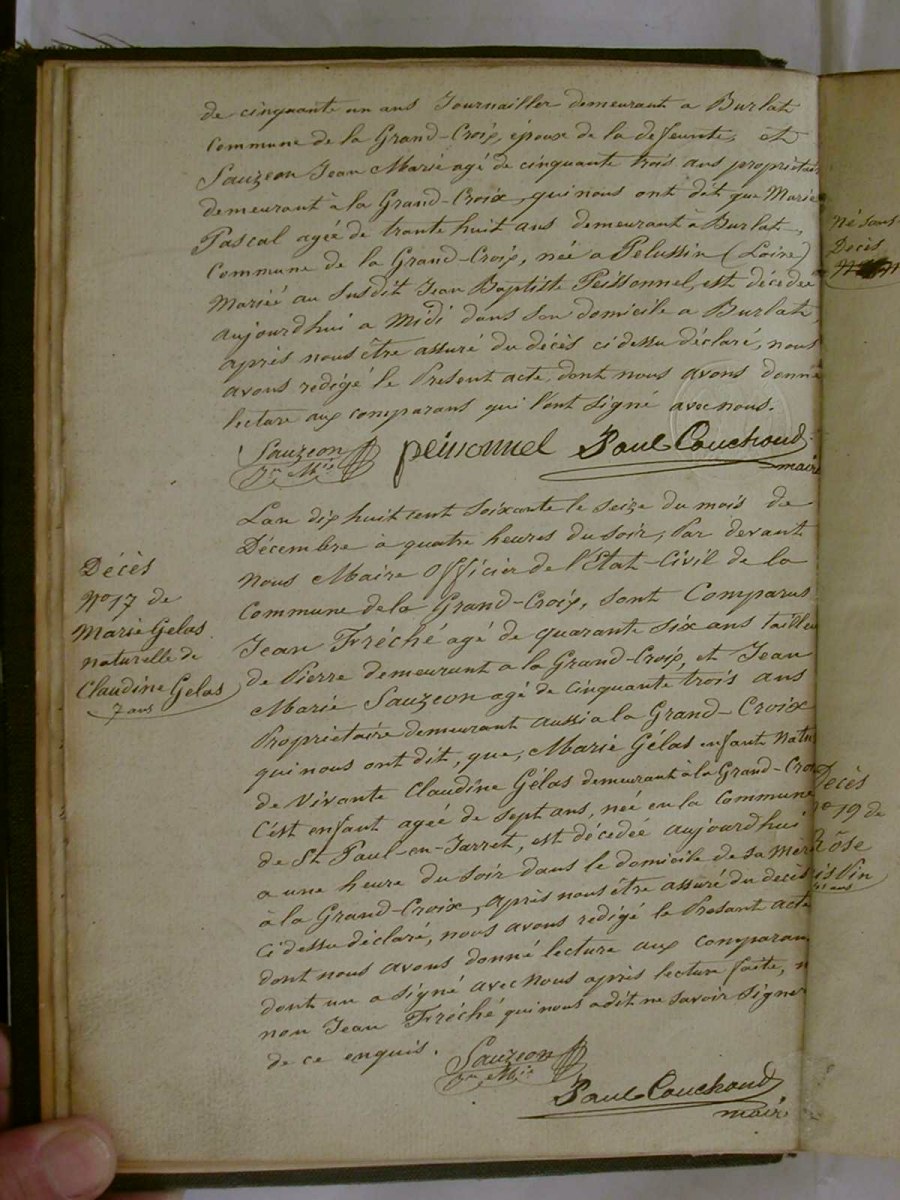 de cinquante un ans Journailler demeurant a Burlat
Commune de la Grand-Croix, époux de la defeunte, et
Sauzeon Jean Marie agé de cinquante trois ans propriétai
demeurant à la Grand-Croix, qui nous ont dit que Marie
Pascal agée de trante huit ans demeurant à Burlat,
Commune de la Grand-Croix, née a Pelussin (Loire)
Mariée au Susdit Jean Baptiste Peissonnel, est décedée
aujourd'hui a Midi dans son domicile a Burlat,
après nous être assuré du décès ci dessu déclaré, nous
avons redigé le Present acte, dont nous avons donné
lecture aux comparans qui l'ont signé avec nous.
Sauzeon peisonnel Paul Couchoud
Jn Mie maire
Décès
No 17 de
Marie Gelas
naturelle de
Claudine Gelas
7 ans
L'an dix huit cent soixante le seize du mois de
Décembre à quatre heures du soir, Par devant
nous Maire Officier de l'Etat-Civil de la
Commune de la Grand-Croix, sont Comparus
Jean Fréché agé de quarante six ans tailleu
de Pierre demeurant a la Grand-Croix, et Jean
Marie Sauzeon agé de cinquante trois ans
Propriétaire demeurant aussi a la Grand-Croix
qui nous ont dit, que, Marie Gélas enfante natu
de vivante Claudine Gélas demeurant à la Grand-Croi
C'est enfant agée de sept ans, née en la Commune
de St Paul-en-Jarret, est décedée aujourd'hui
a une heure du soir dans le domicile de sa Mere
à la Grand-Croix, Après nous être assuré du décès
ci dessu déclaré, nous avons redigé le Présent acte
dont nous avons donné lecture aux comparan
dont un a signé avec nous après lecture faite, n
non Jean Fréché qui nous a dit ne savoir signer
de ce enquis.
Sauzeon
Jn Mie
Paul Couchoud
maire
Né sans
Decès
Decès
No 19 de
Rose
Vin